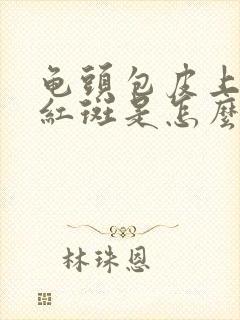 龟頭包皮上
紅斑是怎麼
林珠恩